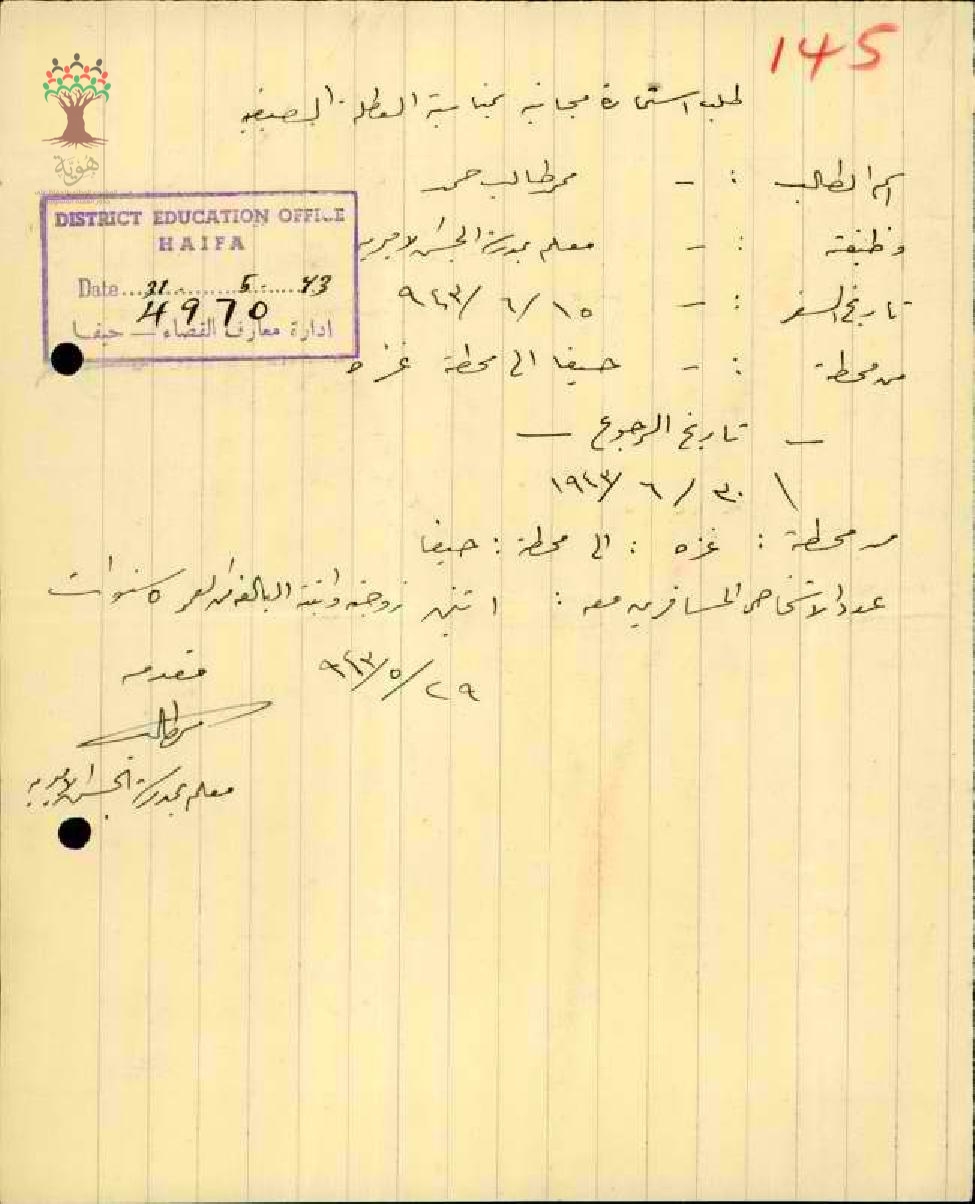 145
هَويّة
طلب استمارة مجانية بمناسبة العطلة الصيفيه
اسم الطالب : - محمد طالب حمد
DISTRICT EDUCATION OFFICE
HAIFA
Date ... 31 ... 5 ... 43
4970
ادارة معارف القضاء — حيفا
وظيفته : - معلم بمدرسة الاميريه
تاريخ السفر : - ١٥ / ٦ / ٩٤٣
من محطة : - حيفا الى محطة غزه
— تاريخ الرجوع —
\ ٣٠ / ٦ / ١٩٤٣
من محطة : غزه : الى محطة : حيفا
عدد الاشخاص المسافرين معه : اثنين زوجته وابنته البالغه من العمر ٥ سنوات
٢٩ / ٥ / ٩٤٣
مقدمه
محمد طالب
معلم بمدرسة الاميريه